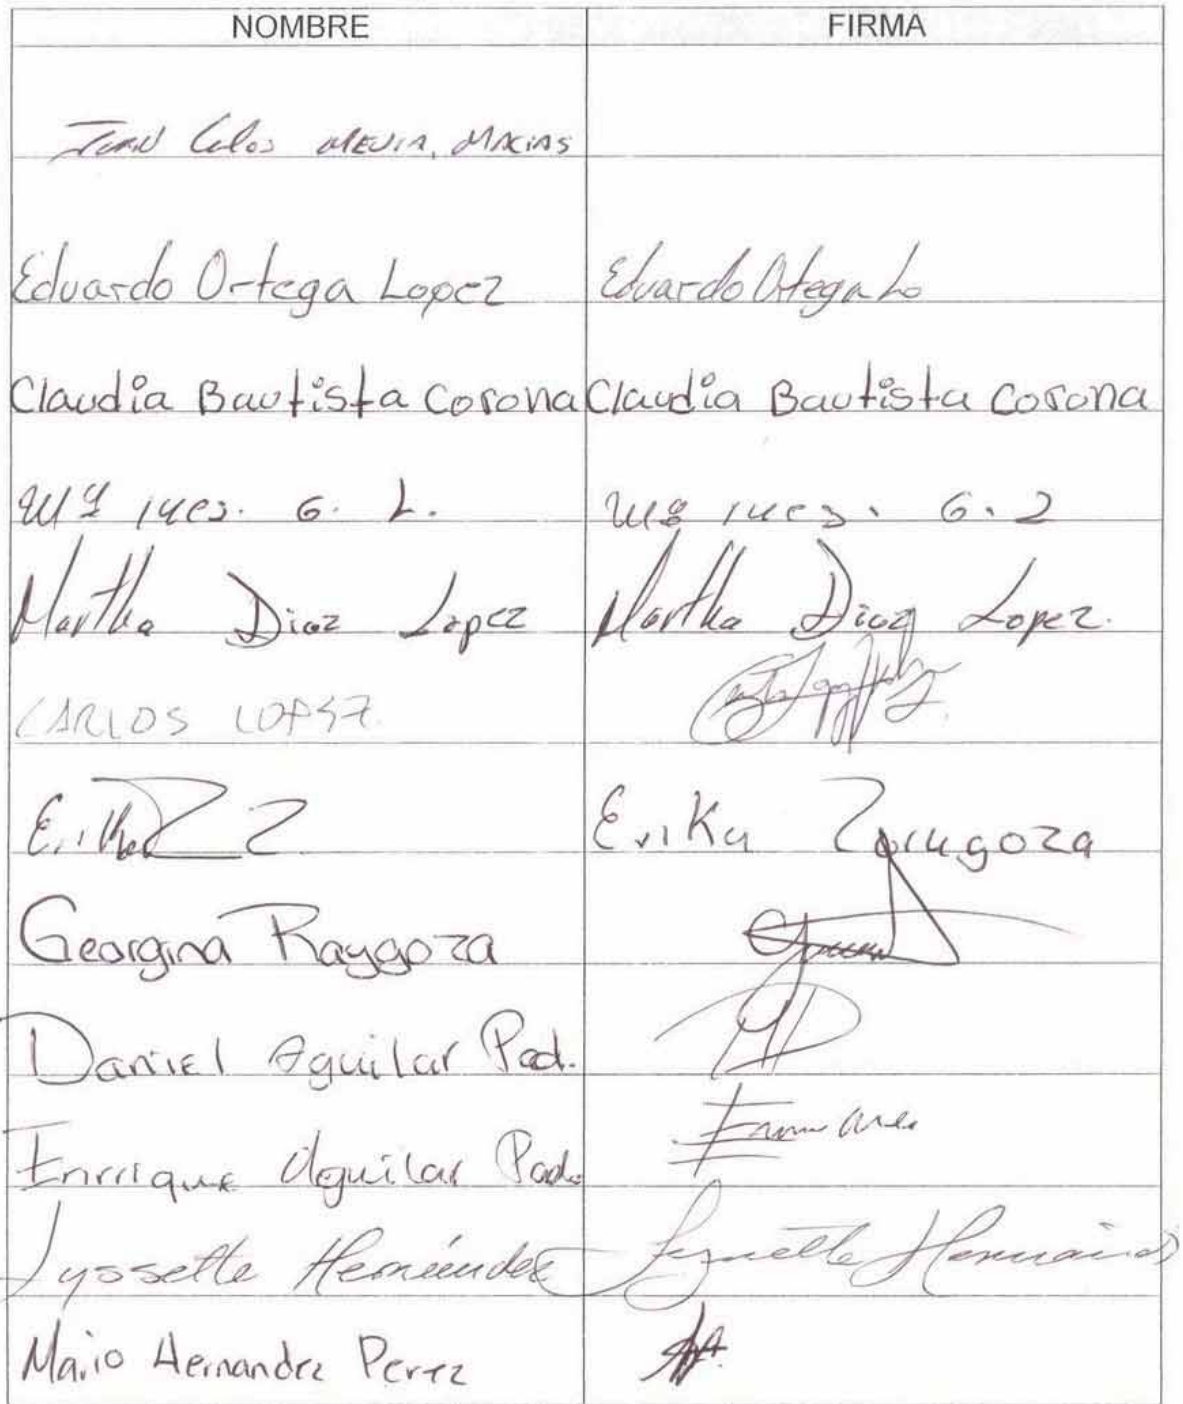 NOMBRE FIRMA
Juan Carlos MEJIA MACIAS
Eduardo Ortega Lopez Eduardo Ortega Lo
Claudia Bautista Corona Claudia Bautista Corona
Mª Ines. G. L. Mª Ines. G. L
Martha Diaz Lopez Martha Diaz Lopez.
CARLOS LOPEZ
Erika Z Erika Zaragoza
Georgina Raygoza
Daniel Aguilar Pad.
Enrrique Aguilar Pad.
Lyssette Hernández Lyssette Hernández
Mario Hernandez Perez